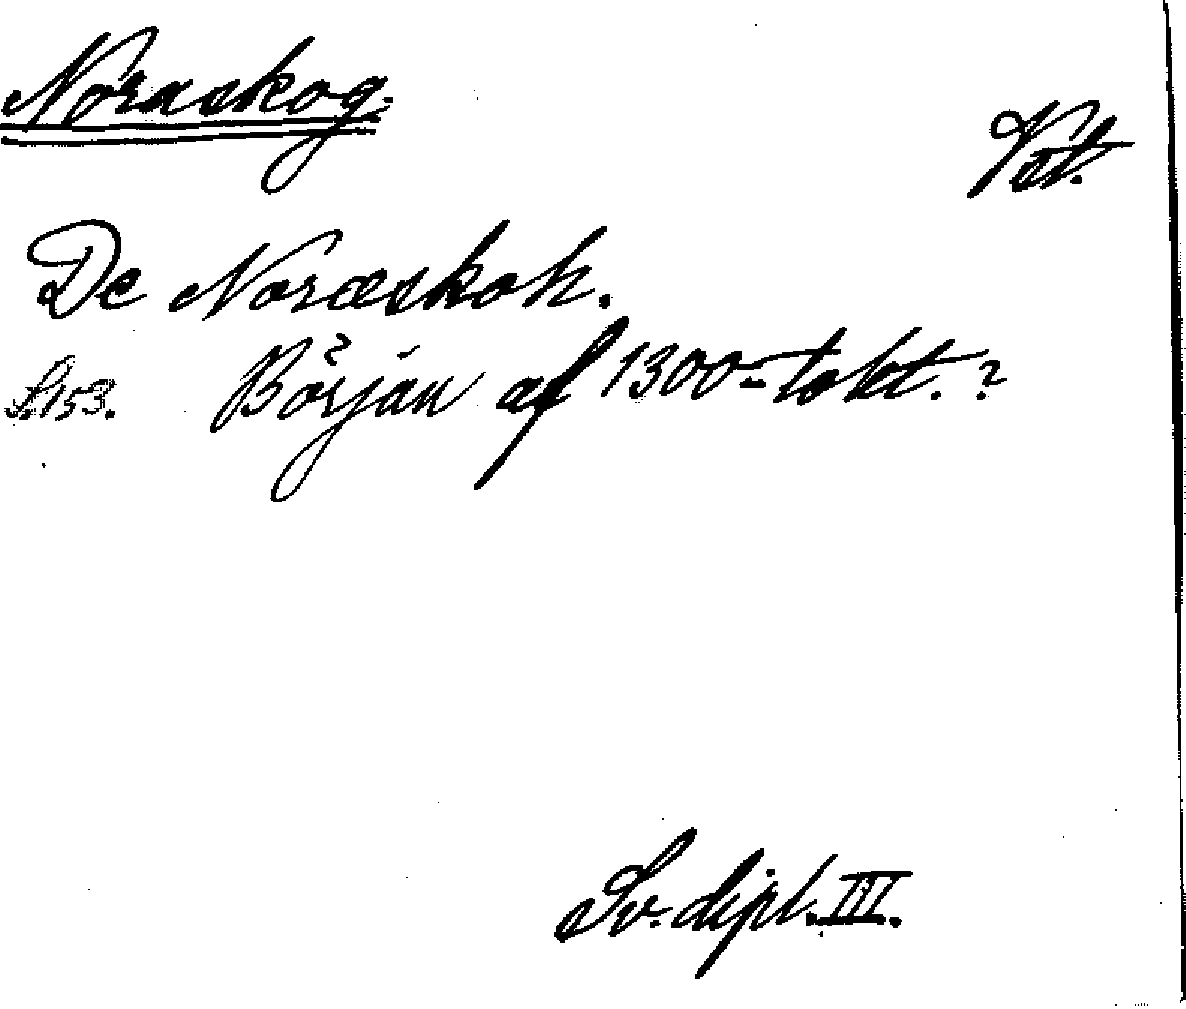 Noraskog.
Vst.
De Noræskoh.
S. 153. Början af 1300-talet.?
Sv. dipl. III.